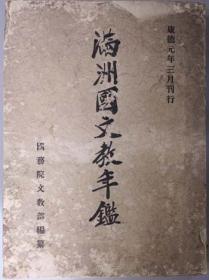 康德元年三月刊行
滿洲國文教年鑑
國務院文教部編纂